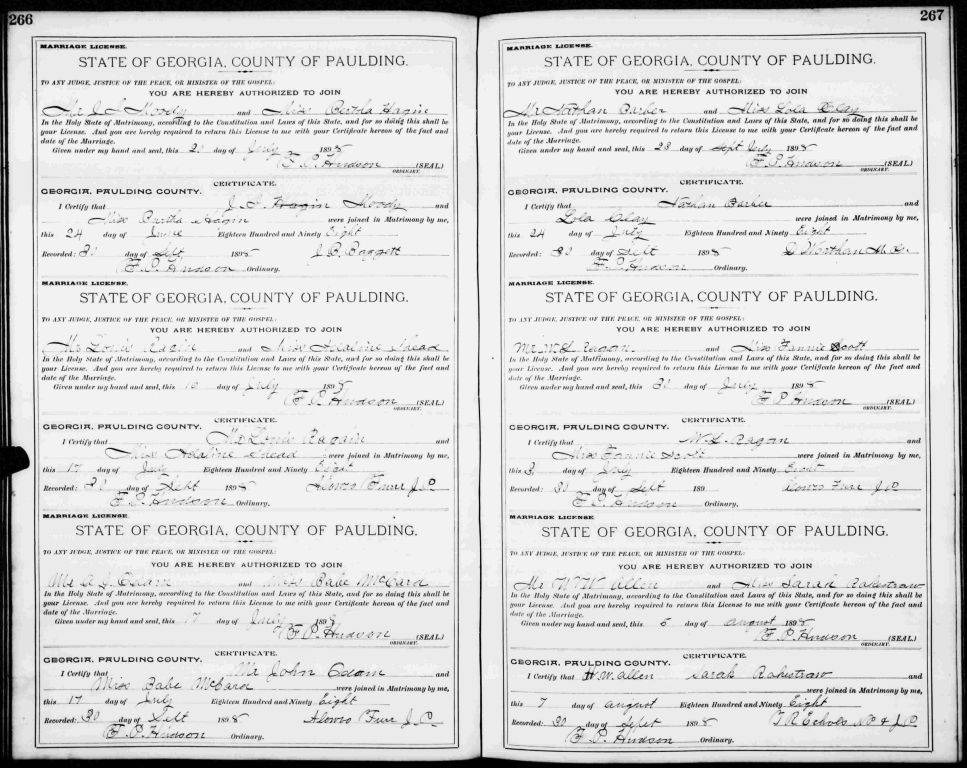 266
MARRIAGE LICENSE.
STATE OF GEORGIA, COUNTY OF PAULDING.
TO ANY JUDGE, JUSTICE OF THE PEACE, OR MINISTER OF THE GOSPEL:
YOU ARE HEREBY AUTHORIZED TO JOIN
Mr J. I. Moody and Miss Bertha Hagin
In the Holy State of Matrimony, according to the Constitution and Laws of this State, and for so doing this shall be
your License. And you are hereby required to return this License to me with your Certificate hereon of the fact and
date of the Marriage.
Given under my hand and seal, this day of July 1898
F. P. Hudson (SEAL)
ORDINARY.
CERTIFICATE.
GEORGIA, PAULDING COUNTY.
I Certify that J. I. Hagin Moody and
Miss Bertha Hagin were joined in Matrimony by me,
this 24 day of June Eighteen Hundred and Ninety Eight
Recorded: 30 day of Sept 1898 J. B. Baggett
F. P. Hudson Ordinary.
MARRIAGE LICENSE.
STATE OF GEORGIA, COUNTY OF PAULDING.
TO ANY JUDGE, JUSTICE OF THE PEACE, OR MINISTER OF THE GOSPEL:
YOU ARE HEREBY AUTHORIZED TO JOIN
Mr Louie Ragin and Miss Adaline Snead
In the Holy State of Matrimony, according to the Constitution and Laws of this State, and for so doing this shall be
your License. And you are hereby required to return this License to me with your Certificate hereon of the fact and
date of the Marriage.
Given under my hand and seal, this 16 day of July 1898
F. P. Hudson (SEAL)
ORDINARY.
CERTIFICATE.
GEORGIA, PAULDING COUNTY.
I Certify that Mr Louie Ragain and
Miss Adaline Snead were joined in Matrimony by me,
this 17 day of July Eighteen Hundred and Ninety Eight
Recorded: 30 day of Sept 1898 Alonzo Furr J.P.
F. P. Hudson Ordinary.
MARRIAGE LICENSE.
STATE OF GEORGIA, COUNTY OF PAULDING.
TO ANY JUDGE, JUSTICE OF THE PEACE, OR MINISTER OF THE GOSPEL:
YOU ARE HEREBY AUTHORIZED TO JOIN
Mr J. Odam and Miss Babe McCard
In the Holy State of Matrimony, according to the Constitution and Laws of this State, and for so doing this shall be
your License. And you are hereby required to return this License to me with your Certificate hereon of the fact and
date of the Marriage.
Given under my hand and seal, this 17 day of July 1898
F. P. Hudson (SEAL)
ORDINARY.
CERTIFICATE.
GEORGIA, PAULDING COUNTY.
I Certify that Mr John Odam and
Miss Babe McCard were joined in Matrimony by me,
this 17 day of July Eighteen Hundred and Ninety Eight
Recorded: 30 day of Sept 1898 Alonzo Furr J.P.
F. P. Hudson Ordinary.
267
MARRIAGE LICENSE.
STATE OF GEORGIA, COUNTY OF PAULDING.
TO ANY JUDGE, JUSTICE OF THE PEACE, OR MINISTER OF THE GOSPEL:
YOU ARE HEREBY AUTHORIZED TO JOIN
Mr Nathan Barber and Miss Lola Clay
In the Holy State of Matrimony, according to the Constitution and Laws of this State, and for so doing this shall be
your License. And you are hereby required to return this License to me with your Certificate hereon of the fact and
date of the Marriage.
Given under my hand and seal, this 23 day of Sept July 1898
F. P. Hudson (SEAL)
ORDINARY.
CERTIFICATE.
GEORGIA, PAULDING COUNTY.
I Certify that Nathan Barber and
Lola Clay were joined in Matrimony by me,
this 24 day of July Eighteen Hundred and Ninety Eight
Recorded: 30 day of Sept 1898
F. P. Hudson Ordinary.
MARRIAGE LICENSE.
STATE OF GEORGIA, COUNTY OF PAULDING.
TO ANY JUDGE, JUSTICE OF THE PEACE, OR MINISTER OF THE GOSPEL:
YOU ARE HEREBY AUTHORIZED TO JOIN
Mr W. L. Ragon and Miss Fannie Scott
In the Holy State of Matrimony, according to the Constitution and Laws of this State, and for so doing this shall be
your License. And you are hereby required to return this License to me with your Certificate hereon of the fact and
date of the Marriage.
Given under my hand and seal, this day of July 1898
F. P. Hudson (SEAL)
ORDINARY.
CERTIFICATE.
GEORGIA, PAULDING COUNTY.
I Certify that W. L. Ragon and
Miss Fannie Scott were joined in Matrimony by me,
this day of July Eighteen Hundred and Ninety Eight
Recorded: 30 day of Sept 189 Alonzo Furr J.P.
F. P. Hudson Ordinary.
MARRIAGE LICENSE
STATE OF GEORGIA, COUNTY OF PAULDING.
TO ANY JUDGE, JUSTICE OF THE PEACE, OR MINISTER OF THE GOSPEL:
YOU ARE HEREBY AUTHORIZED TO JOIN
Mr W. W. Allen and Miss Sarah Rakestraw
In the Holy State of Matrimony, according to the Constitution and Laws of this State, and for so doing this shall be
your License. And you are hereby required to return this License to me with your Certificate hereon of the fact and
date of the Marriage.
Given under my hand and seal, this 5 day of August 1898
F. P. Hudson (SEAL)
ORDINARY.
CERTIFICATE.
GEORGIA, PAULDING COUNTY.
I Certify that W. W. Allen Sarah Rakestraw and
were joined in Matrimony by me,
this 7 day of August Eighteen Hundred and Ninety Eight
Recorded: 30 day of Sept 1898 Echols N.P. & J.P.
F. P. Hudson Ordinary.